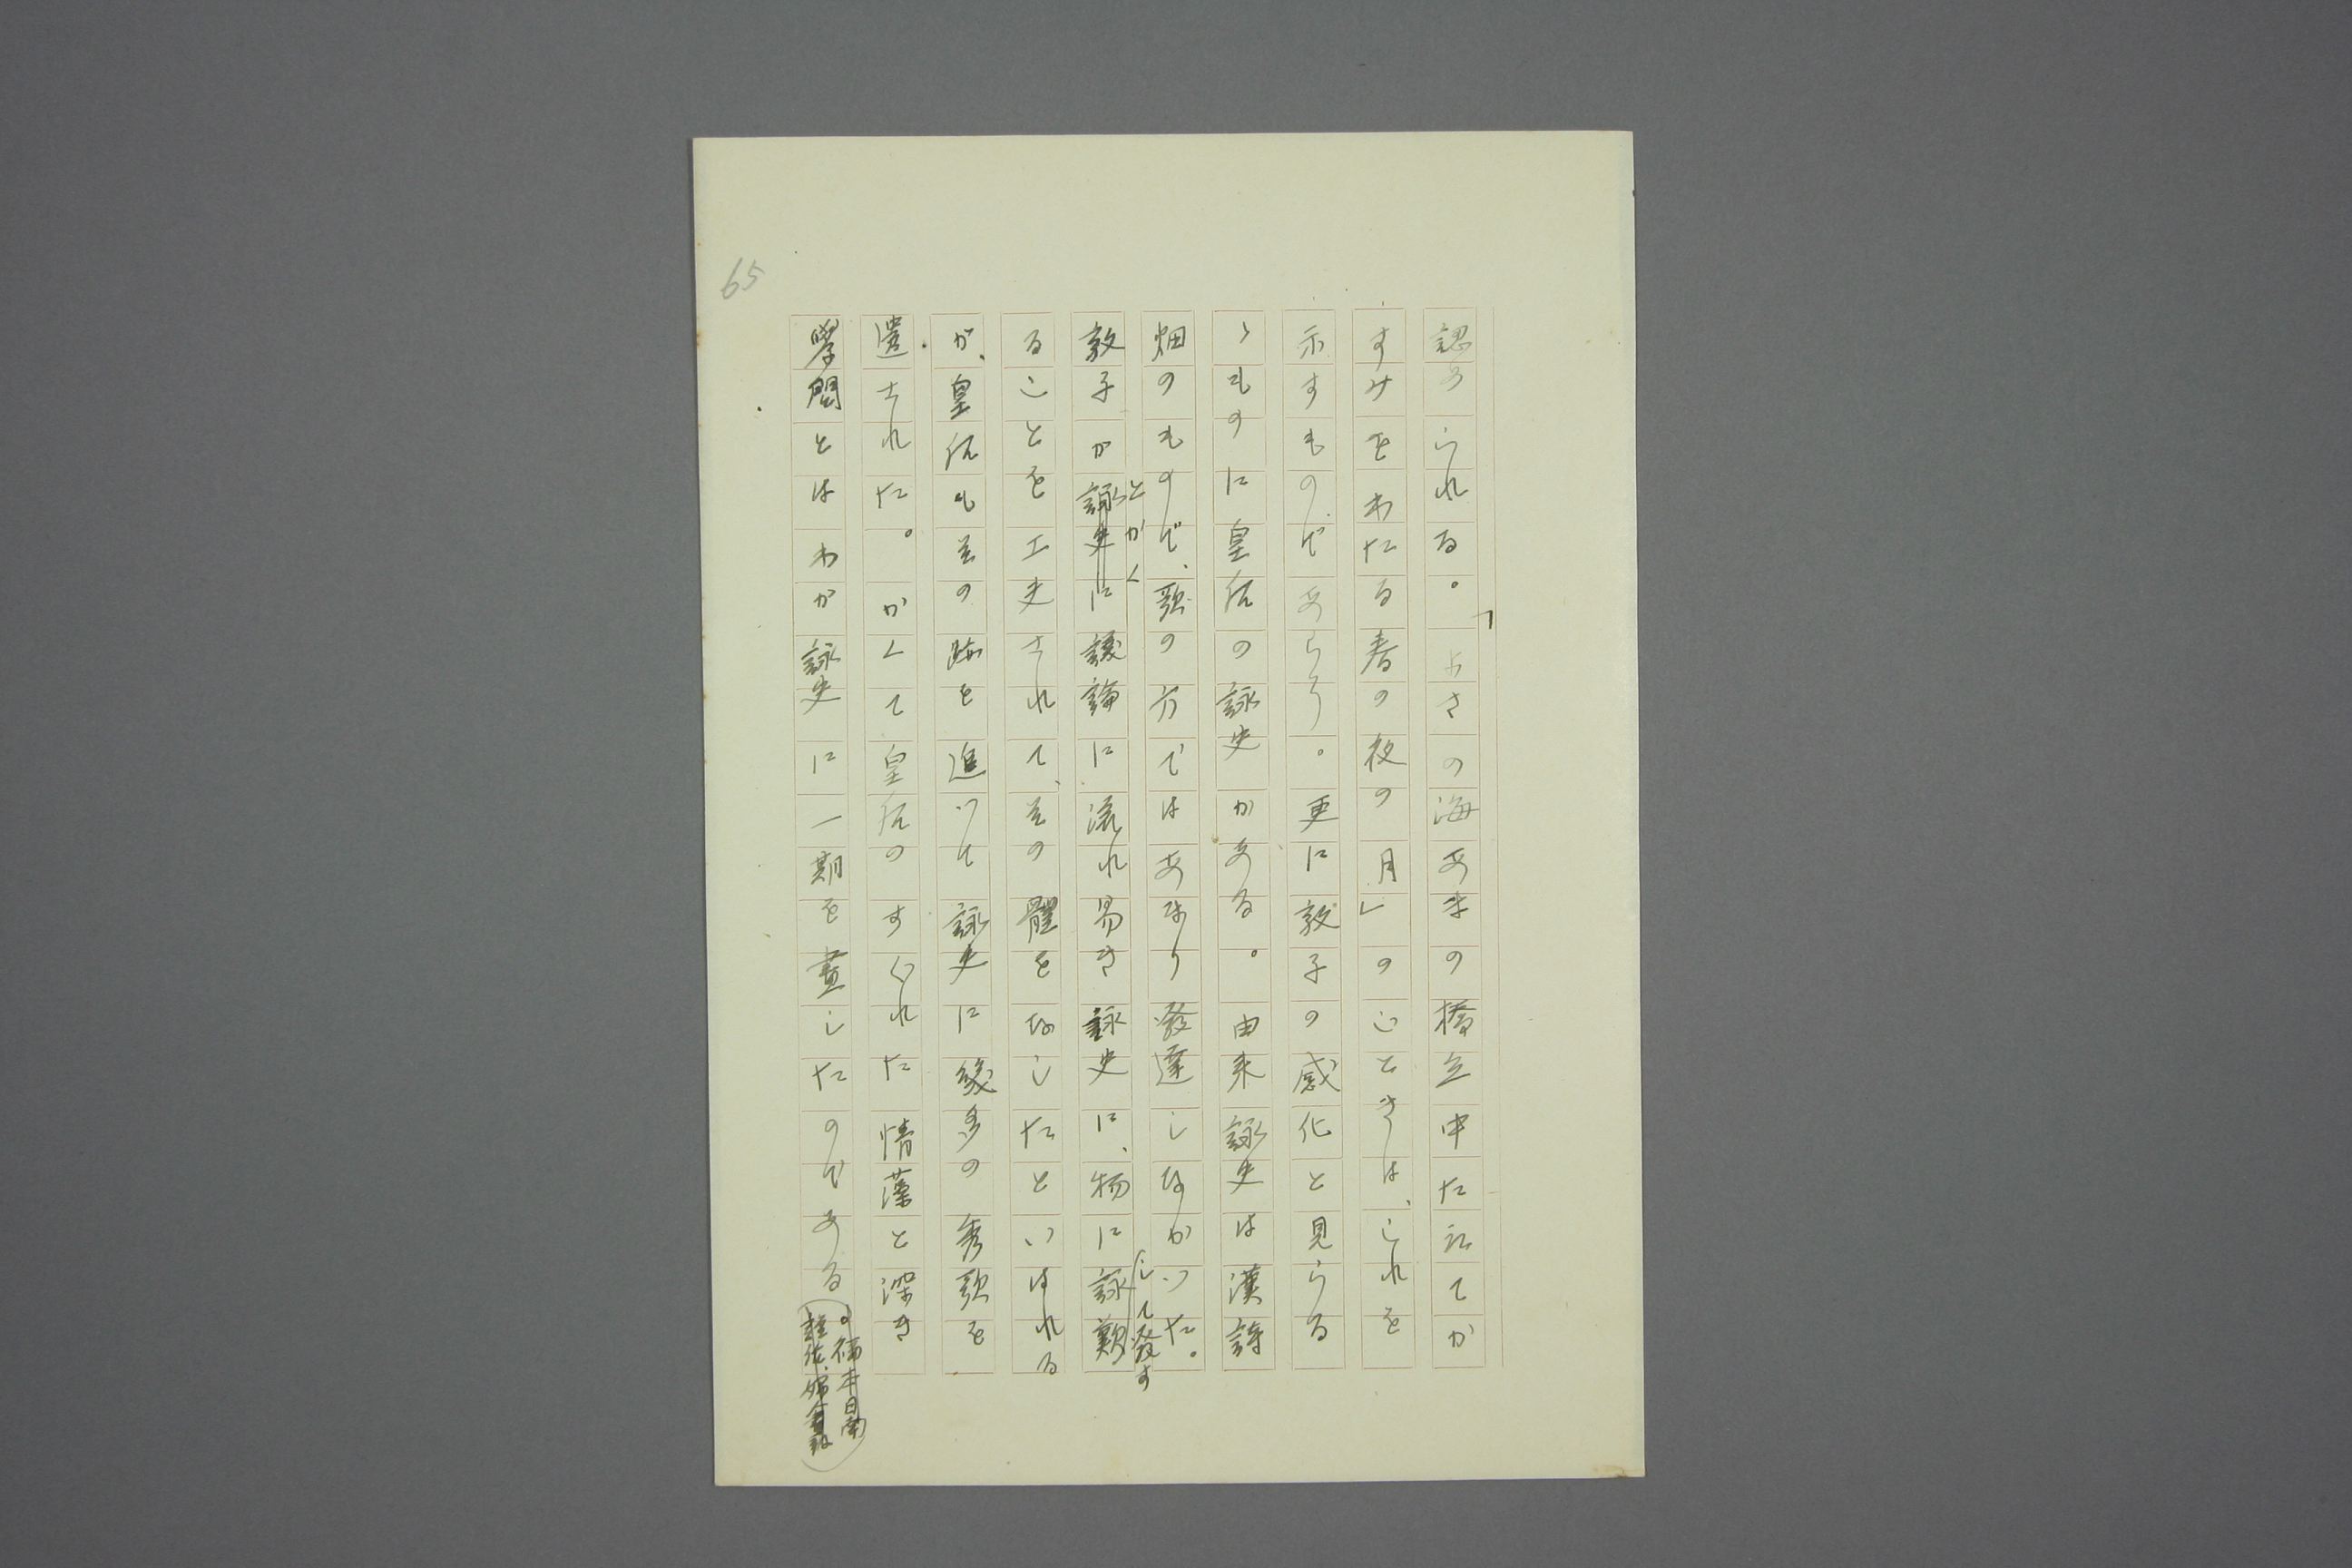 65
認められる。「よさの海あまの橋立中たえてか
すみをわたる春の夜の月」のごときは、これを
示すものであらう。更に敦子の感化と見らる
ゝものに皇后の詠史がある。由来詠史は漢詩
畑のもので、歌の方ではあまり發達しなかつた。
敦子がとかく議論に流れ易き詠史に、物に詠歎して發す
ることを工夫されて、その體をなしたといはれる
が、皇后もその跡を追つて詠史に幾多の秀歌を
遺された。かくて皇后のすぐれた情藻と深き
學問とはわが詠史に一期を畫したのである。(福本日南